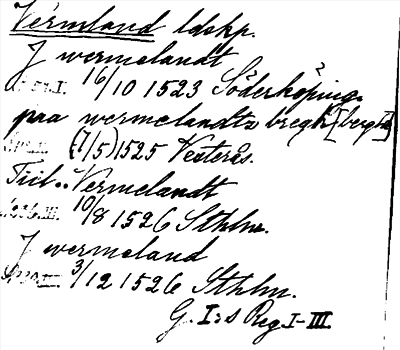 Värmland ldskp.
J wermelandt
16/10 1523 Söderköping.
paa wermelandtz bregh [bergh]
(7/5) 1525 Vesterås.
Tiil.. Vermelandt
10/8 1526 Sthlm.
J wermeland
3/12 1526 Sthlm.
G. I:s Reg. I-III.